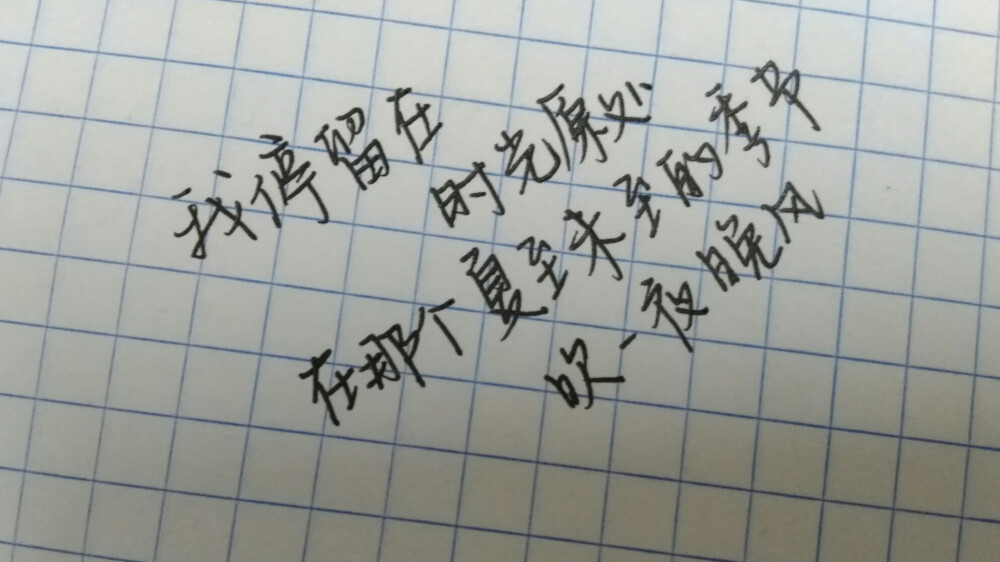 我停留在
时光原处
在那个夏至未至的季节
吹一夜晚风